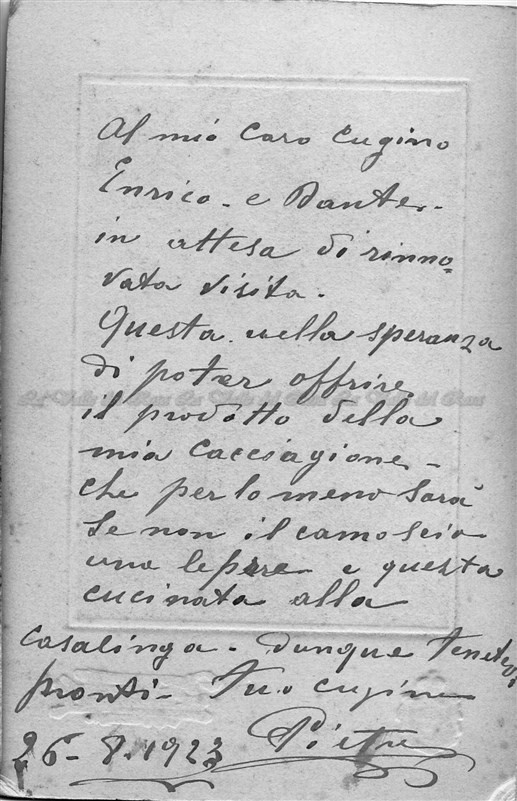 Al mio caro Cugino
Enrico - e Dante -
in attesa di rinno-
vata visita -
Questa nella speranza
di poter offrire
il prodotto della
mia cacciagione -
che per lo meno sarà
se non il camoscio
una lepre e questa
cucinata alla
casalinga - dunque tenetevi
pronti - tuo cugino
Pietro
26 - 8. 1923